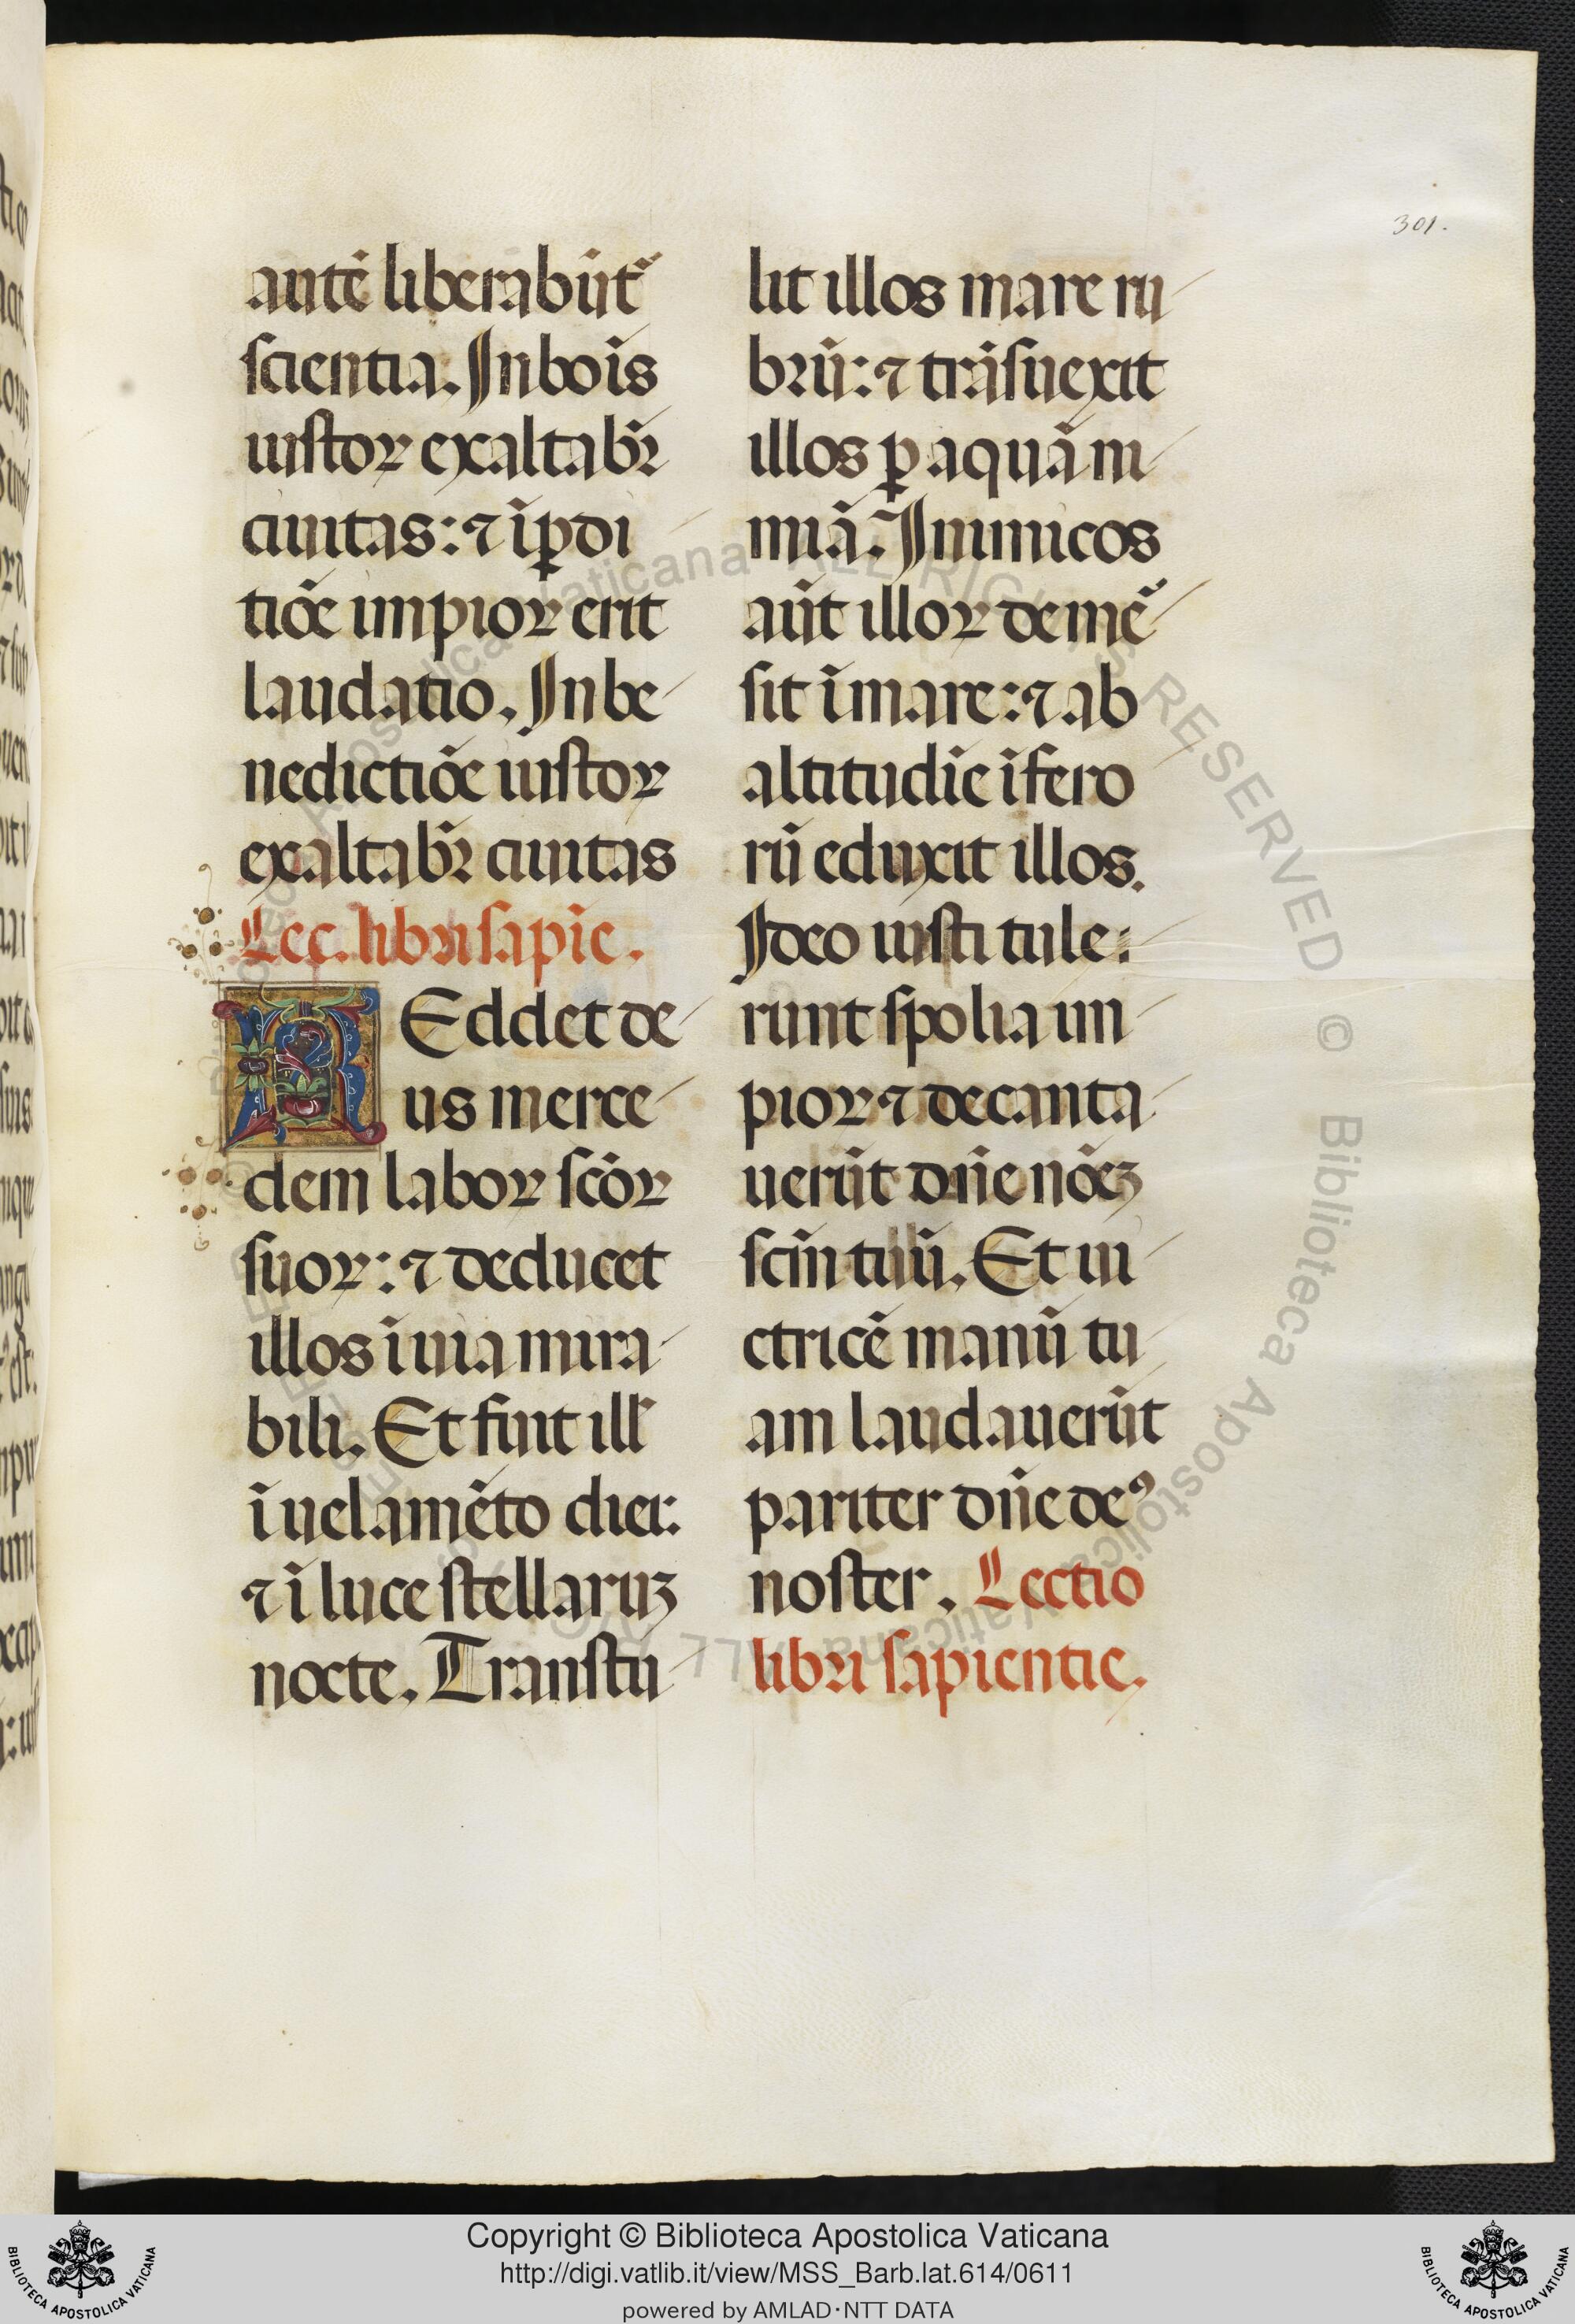 301.
autē liberabūt᷑
scientia. In boīs
iustoꝝ exaltabr̄
ciuitas: ⁊ ī ꝑdi
tiōe impioꝝ erit
laudatio. In be
nedictiōe iustoꝝ
exaltabr̄ ciuitas
Lec. libri sapīe.
REddet de
us merce
dem laboꝝ sc̄oꝝ
suoꝝ: ⁊ deducet
illos ī uia mira
bili. Et fuit ill᷒
ī uelamēto diei:
⁊ ī luce stellaruꝫ
nocte. Transtu
lit illos mare ru
brū: ⁊ trāsuexit
illos ꝑ aquā ni
miā. Inimicos
aūt illoꝝ demē᷒
sit ī mare: ⁊ ab
altitudīe īfero
rū eduxit illos.
Ideo iusti tule:
runt spolia im
pioꝝ ⁊ decanta
uerūt dn̄e nōeꝫ
scm̄ tuū. Et ui
ctricē manū tu
am laudauerūt
pariter dn̄e deꝰ
noster. Lectio
libri sapientie.
Copyright © Biblioteca Apostolica Vaticana
http://digi.vatlib.it/view/MSS_Barb.lat.614/0611
powered by AMLAD·NTT DATA
BIBLIOTECA APOSTOLICA VATICANA
BIBLIOTECA APOSTOLICA VATICANA